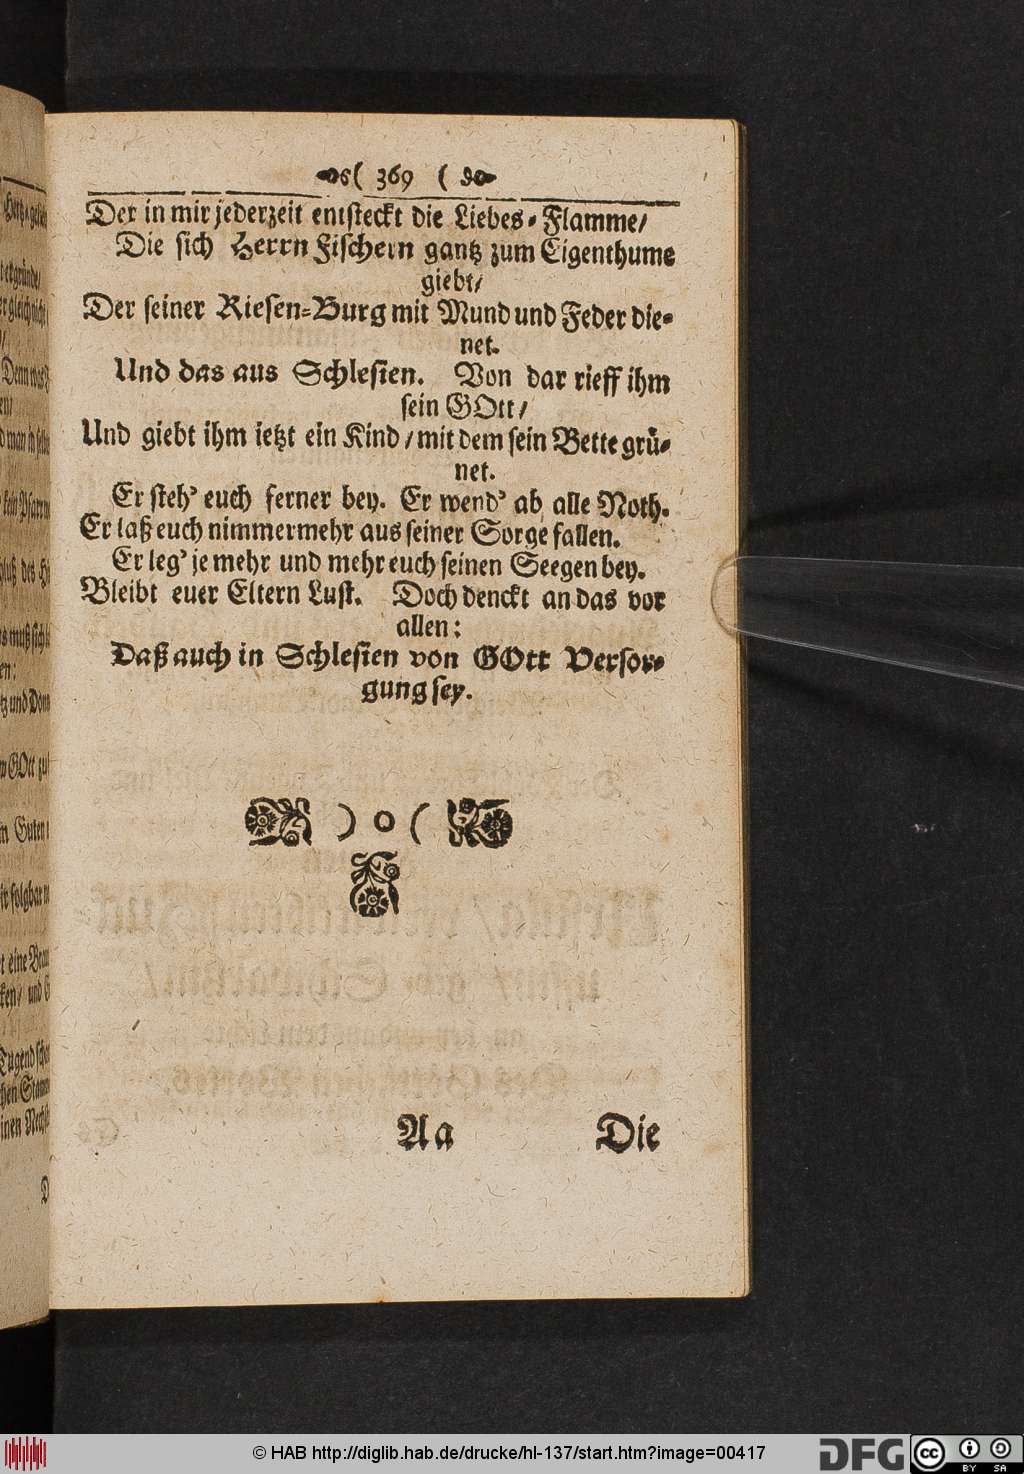 ( 369 (
Der in mir jederzeit entsteckt die Liebes-Flamme/
Die sich Herrn Fischern gantz zum Eigenthume
giebt/
Der seiner Riesen-Burg mit Mund und Feder die-
net.
Und das aus Schlesien. Von dar rieff ihm
sein GOtt/
Und giebt ihm ietzt ein Kind/ mit dem sein Bette grü-
net.
Er steh' euch ferner bey. Er wend' ab alle Noth.
Er laß euch nimmermehr aus seiner Sorge fallen.
Er leg' je mehr und mehr euch seinen Seegen bey.
Bleibt euer Eltern Lust. Doch denckt an das vor
allen:
Daß auch in Schlesien von GOtt Versor-
gung sey.
) o (
Aa Die
© HAB http://diglib.hab.de/drucke/hl-137/start.htm?image=00417
DFG
cc BY SA